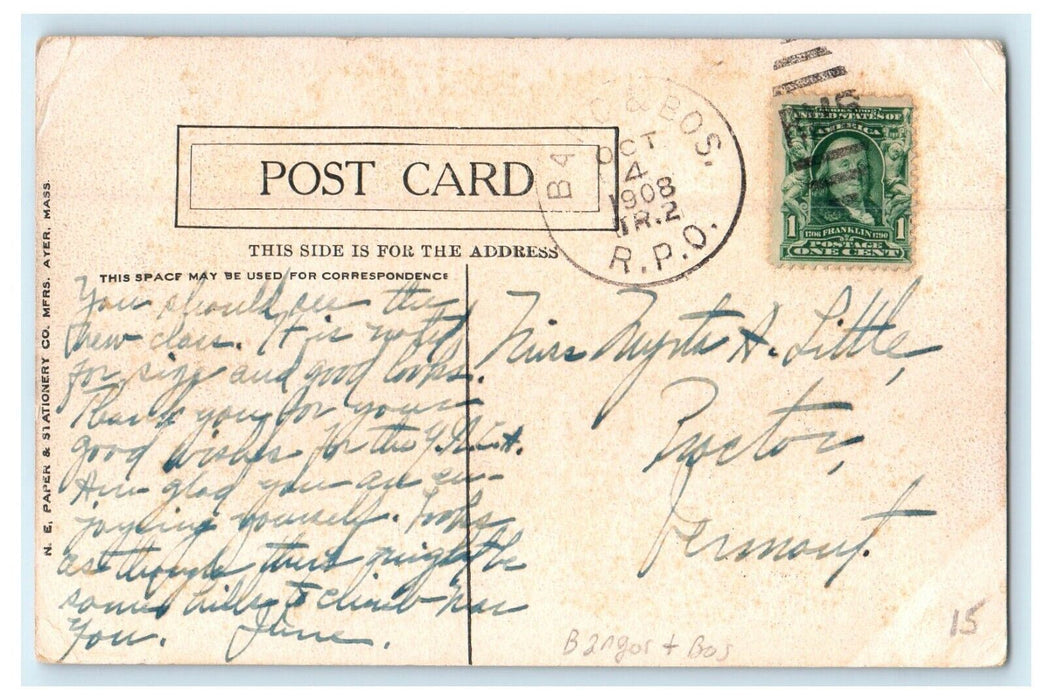 POST CARD
THIS SIDE IS FOR THE ADDRESS
THIS SPACE MAY BE USED FOR CORRESPONDENCE
N. E. PAPER & STATIONERY CO. MFRS. AYER, MASS.
& BOS.
OCT
4
1908
TR. 2
R.P.O.
RMS
SERIES 1902
UNITED STATES OF
AMERICA
1706 FRANKLIN 1790
1 1
POSTAGE
ONE CENT
You should see the
new class. It is noted
for size and good looks.
Thank you for your
good wishes for the Y.W.C.A.
Am glad you are en-
joying yourself. Looks
as though there might be
some hills to climb near
you. June.
Miss Myrta A. Little,
Proctor,
Vermont.
Bangor + Bos
15